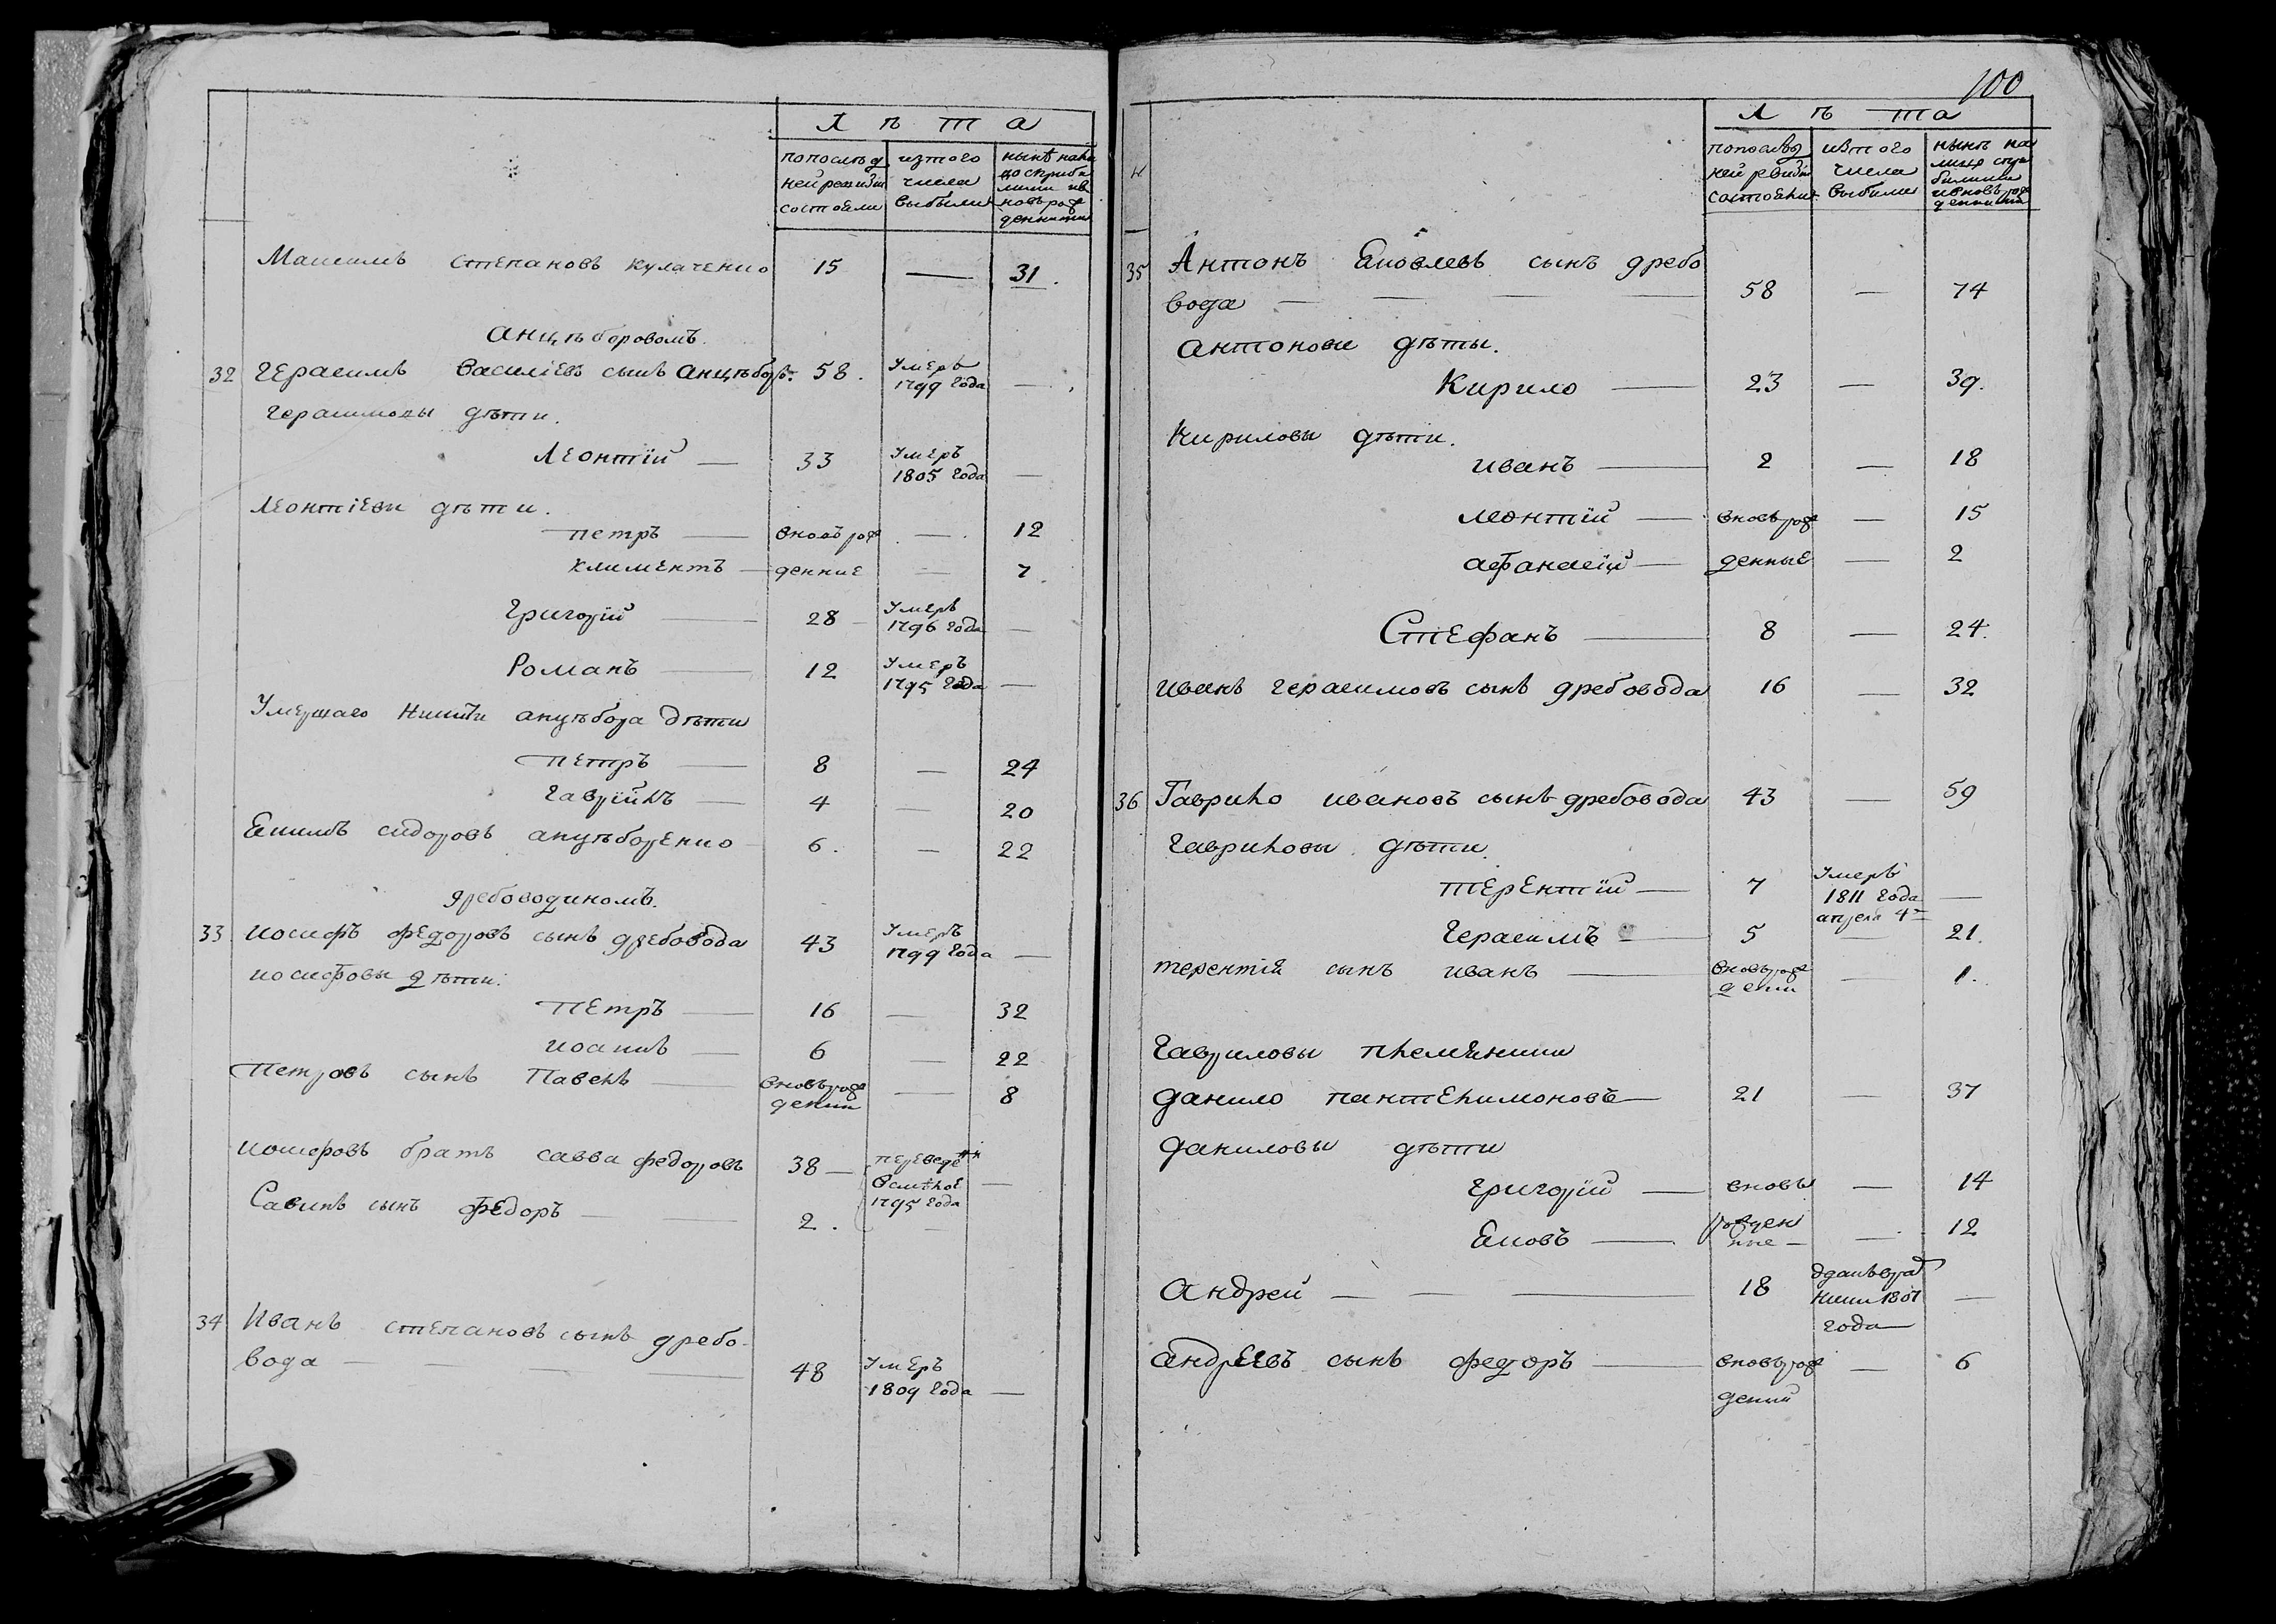 Лѣта
попослѣд изтого нынѣ налi
ней ревизiи числа цо
состояли выбыли
новь рож
денними
Максимъ степановъ кулаченко 15 — 31.
анцыборовомъ.
32 Герасимъ Василiевъ сынъ анцыборъ. 58. Умеръ
1799 года —
Герасимовы дѣти.
Леонтiй — 33 Умеръ
1805 года —
Леонтiеви дѣти.
петръ — вновь рож — 12
климентъ — денние — 7
Григорiй — 28 Умеръ
1796 года —
Романъ — 12 Умеръ
1795 года —
Умершаго Никиты анцыбора дѣти
петръ — 8 — 24
гаврiилъ — 4 — 20
Екимъ сидоровъ анцыборенко 6. — 22
дребоводиномъ.
33 иосифъ федоровъ сынъ дребовода 43 Умеръ
1799 года —
иосифовы дѣти.
Петръ — 16 — 32
иоанъ — 6 — 22
Петровъ сынъ Павелъ — вновь рож
дений — 8
иосифовъ братъ савва федоровъ 38 — переведенъ
1795 года —
Савинъ сынъ федоръ — — 2. —
34 Иванъ степановъ сынъ дребо-
вода — — — 48 Умеръ
1809 года —
100
Лѣта
попослѣд изтого нынѣ на
ней ревизiи числа лицо
состояли выбыли
и вновь рож
денними
35 Антонъ Яковлевъ сынъ дребо
вода — — — — 58 — 74
антонови дѣты.
Кирило — 23 — 39.
Кириловы дѣти.
иванъ — 2 — 18
леонтiй — вновь рож — 15
афанасiй — денные — 2
Стефанъ — 8 — 24.
иванъ герасимовъ сынъ дребовода 16 — 32
36 Гаврило ивановъ сынъ дребовода 43 — 59
гавриловы дѣти.
терентiй — 7 Умеръ
1811 года —
апреля 4
Герасимъ — 5 — 21.
терентiй сынъ иванъ — вновь рож
дени — 1.
Гавриловы племянники
данило пантелимоновъ — 21 — 37
даниловы дѣти
григорiй — вновь — 14
Яковъ — рожден
ные — — 12
андрей — — — 18
1807 —
года
андреевъ сынъ федоръ — вновь рож — 6
дений